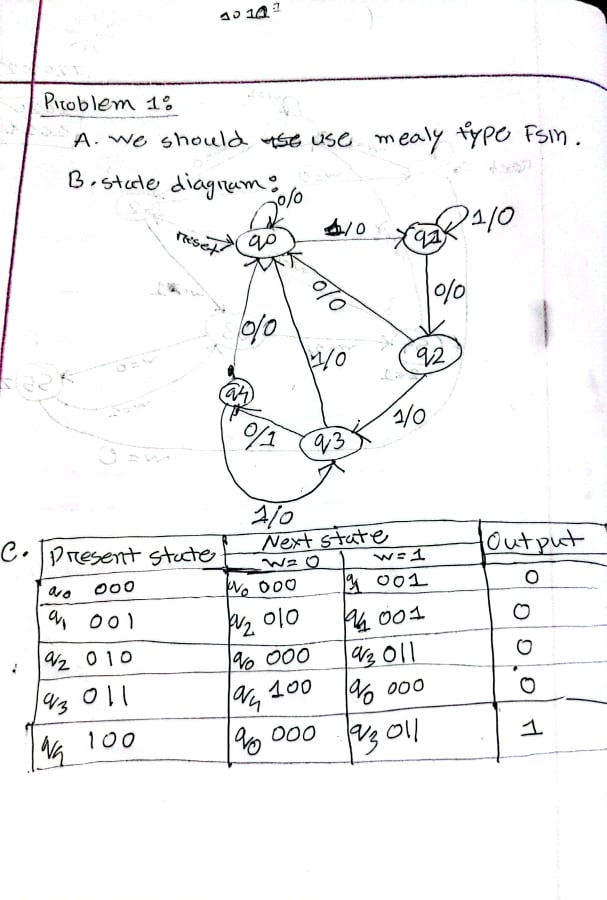 Problem 1:
A. We should use mealy type FSM.
B. state diagram:
0/0
reset
q0
1/0
q1
1/0
0/0
0/0
q2
0/0
1/0
q4
0/1
q3
1/0
1/0
C.
Present state | Next state | Output
w=0 | w=1
q0 000 | q0 000 | q1 001 | 0
q1 001 | q2 010 | q1 001 | 0
q2 010 | q0 000 | q3 011 | 0
q3 011 | q4 100 | q0 000 | 0
q4 100 | q0 000 | q3 011 | 1